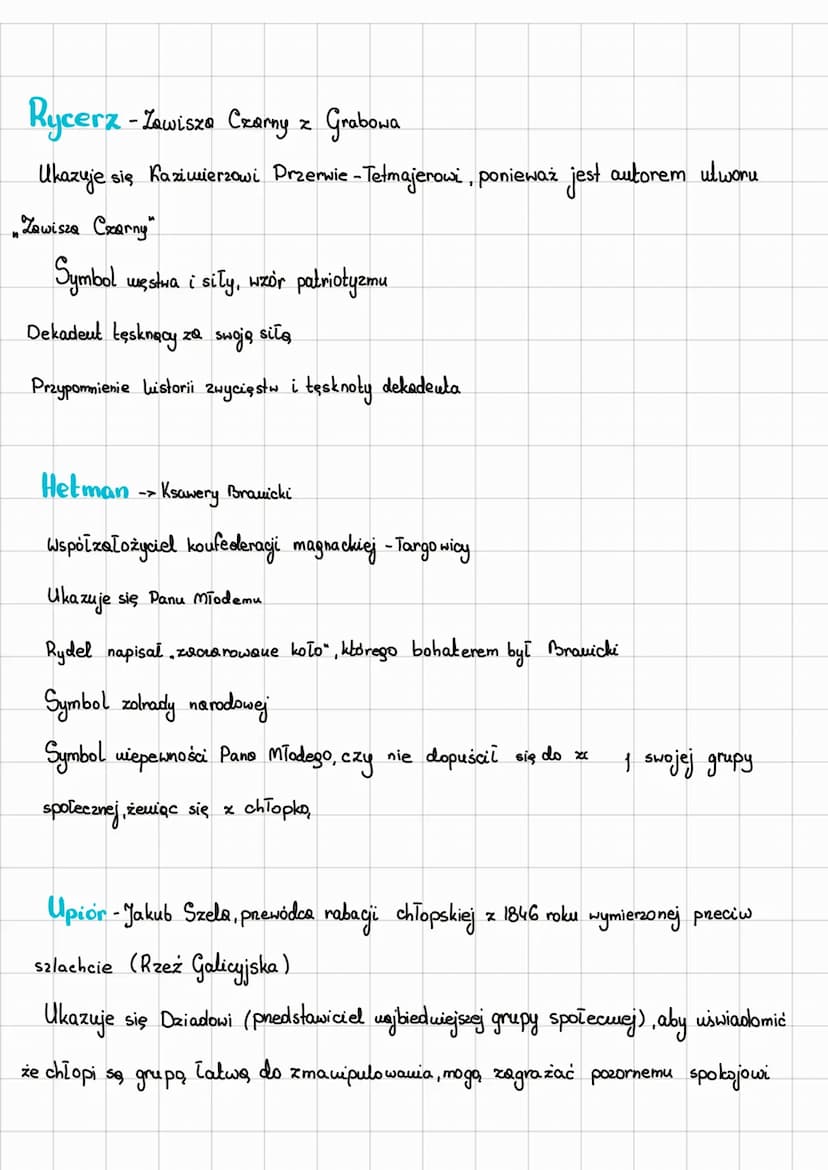 Rycerz - Zawisza Czarny z Grabowa
Ukazuje się Kazimierzowi Przerwie - Tetmajerowi, ponieważ jest autorem utworu
„Zawisza Czarny"
Symbol męstwa i siły, wzór patriotyzmu
Dekadent tęskniący za swoją siłą
Przypomnienie historii zwycięstw i tęsknoty dekadenta
Hetman -> Ksawery Branicki
Współzałożyciel konfederacji magnackiej - Targowicy
Ukazuje się Panu Młodemu
Rydel napisał „zaczarowane koło", którego bohaterem był Branicki
Symbol zdrady narodowej
Symbol niepewności Pana Młodego, czy nie dopuścił się do swojej grupy
społecznej, żeniąc się z chłopką
Upiór - Jakub Szela, przewódca rabacji chłopskiej z 1846 roku wymierzonej przeciw
szlachcie (Rzeź Galicyjska)
Ukazuje się Dziadowi (przedstawiciel najbiedniejszej grupy społecznej), aby uświadomić
że chłopi są grupą łatwą do zmanipulowania, mogą zagrażać pozornemu spokojowi